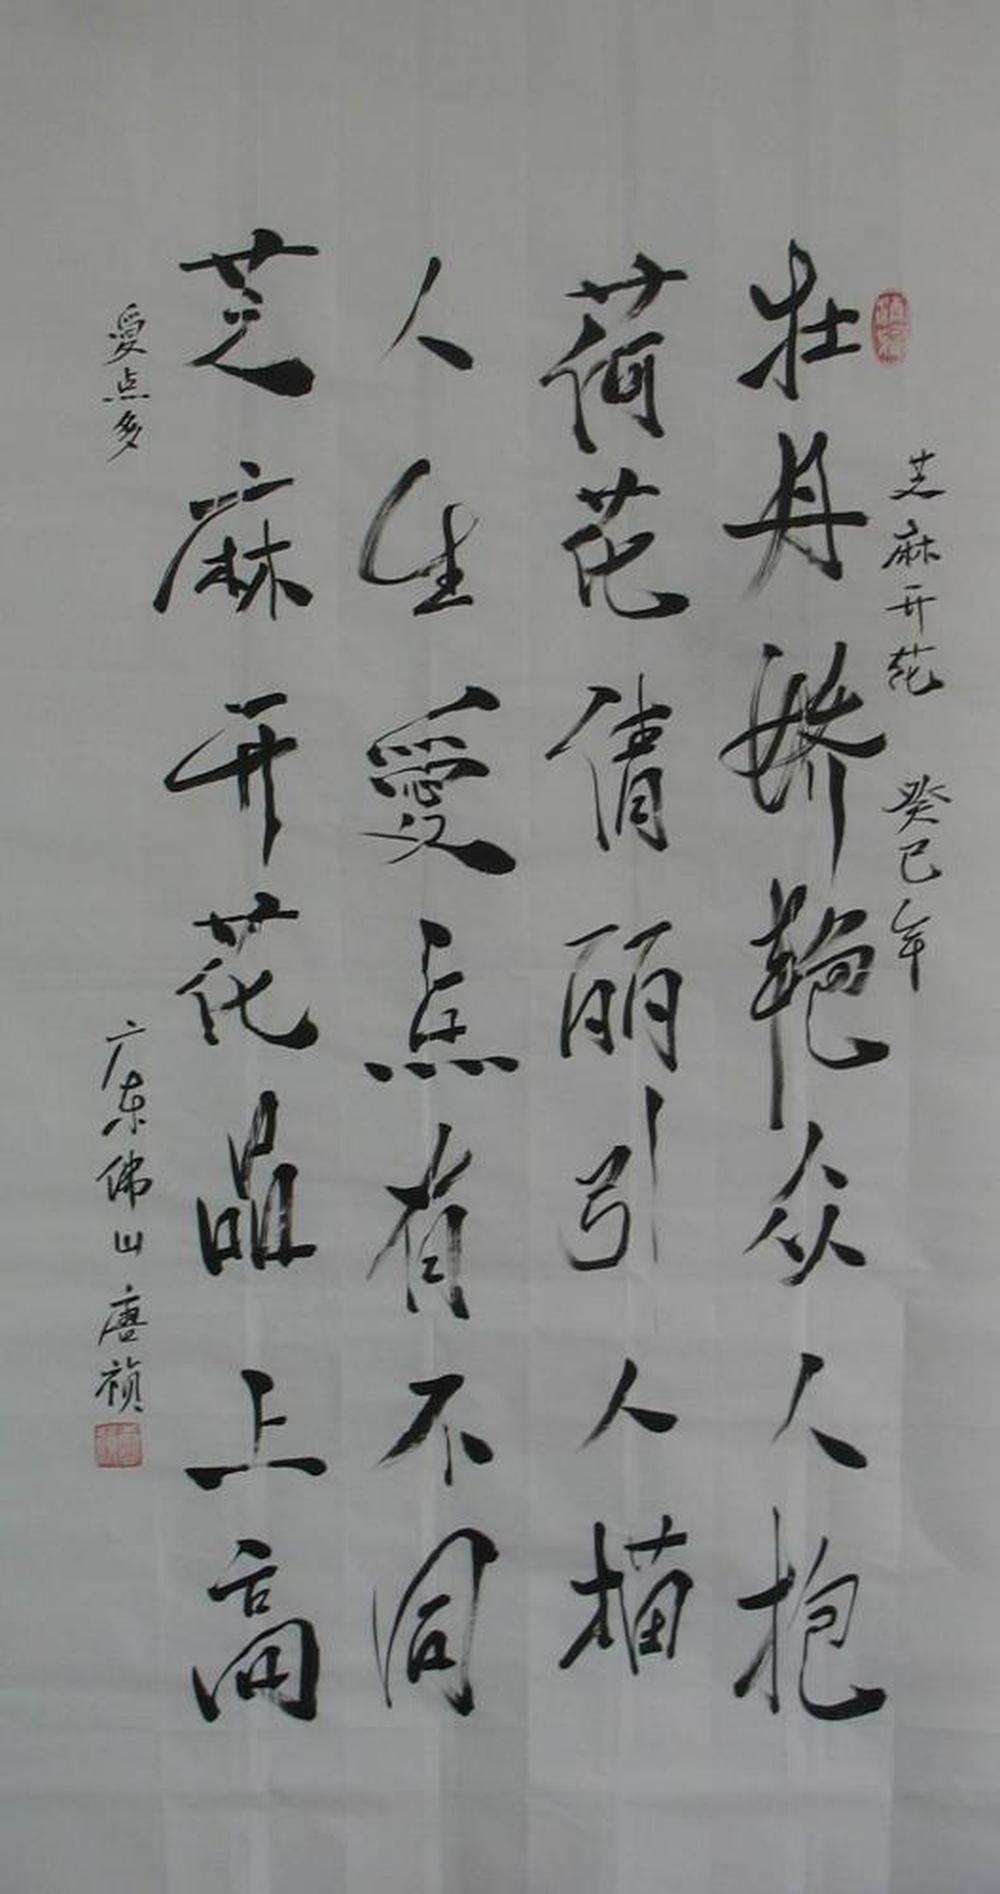 芝麻开花 癸巳年
牡丹娇艳众人抱
荷花倩丽引人描
人生爱点有不同
芝麻开花晶上高
爱点多
广东佛山 唐祯